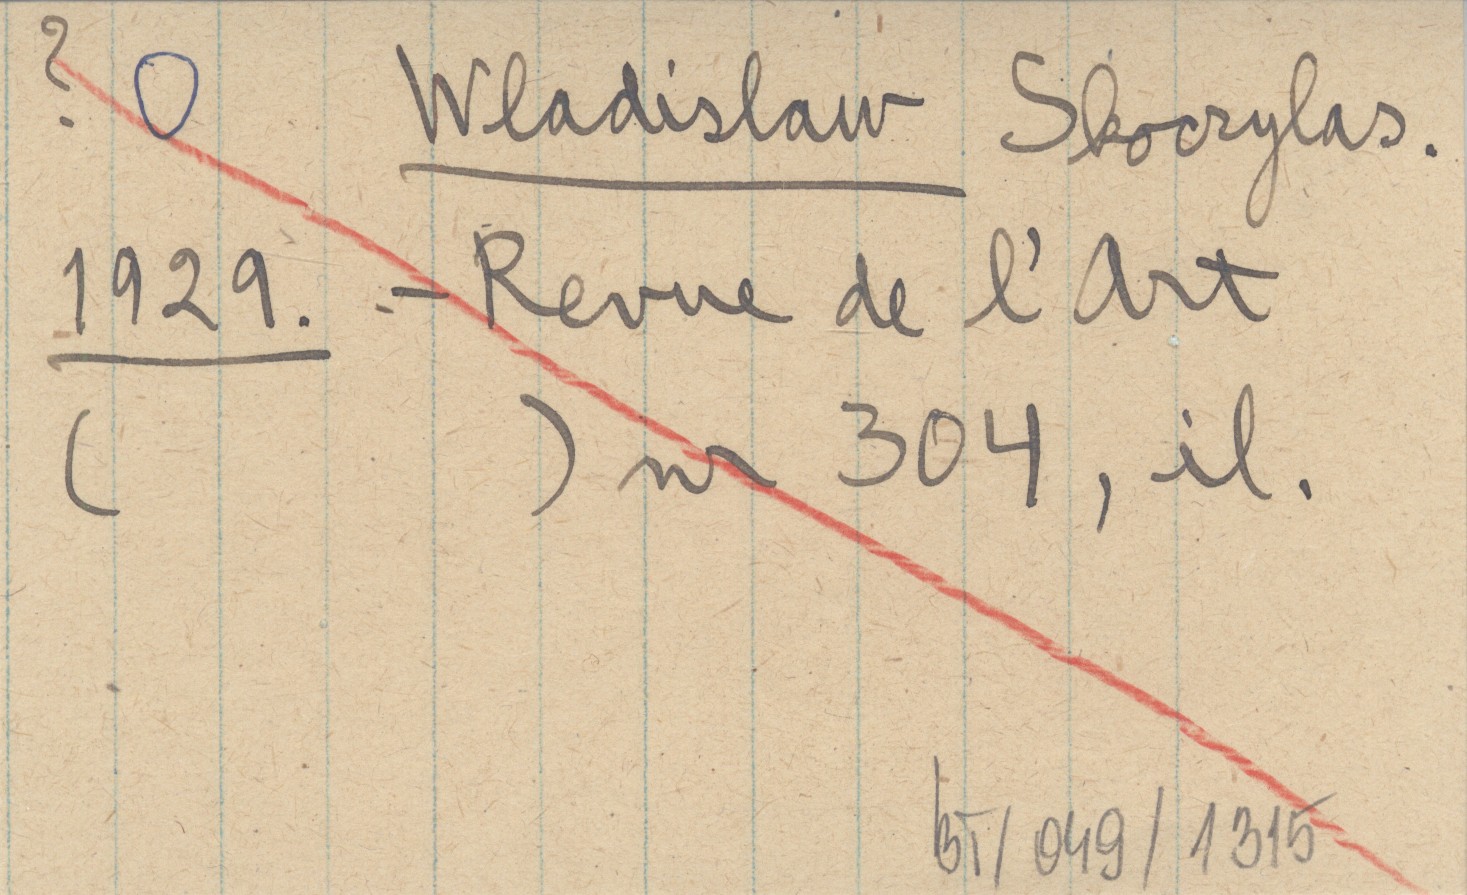 ? O Wladislaw Skoczylas.
1929. - Revue de l'Art
( ) nr 304, il.
BT/049/1315